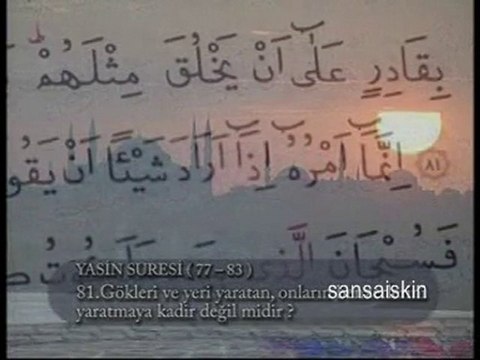 بِقَادِرٍ عَلٰٓى اَنْ يَخْلُقَ مِثْلَهُمْ
اِنَّمَٓا اَمْرُهُٓ اِذَٓا اَرَادَ شَيْـًٔا اَنْ ﴿٨١﴾
فَسُبْحَانَ الَّذ۪ي
YASİN SURESİ ( 77 – 83 )
81.Gökleri ve yeri yaratan, onların
sansaiskin
yaratmaya kadir değil midir ?